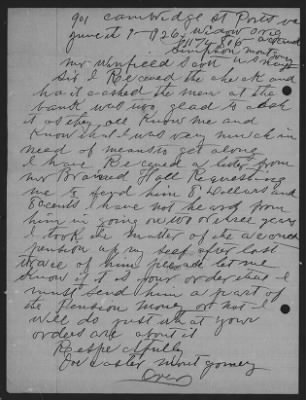 901 Cambridge st Ports va
June it 8 - 1926 widow orig
accound
Simpson montgomery
Mr Winfeed Scott u s navy
Sir I Received the check and
had it cashed the man at the
bank was very glad to cash
it as they all know me and
know that I was very much in
need of means to get along
I have Received a letter from
mr Brainerd Hall Requesting
me to send him 8 Dollars and
80 cents I have not heard from
him in going on two or three years
I took the matter of the
pension up my self after I lost
trace of him please let me
know if it is your order that I
must send him a part of
the Pension money or not I
will do just what your
orders are about it
Respectfully
caster montgomery
Over